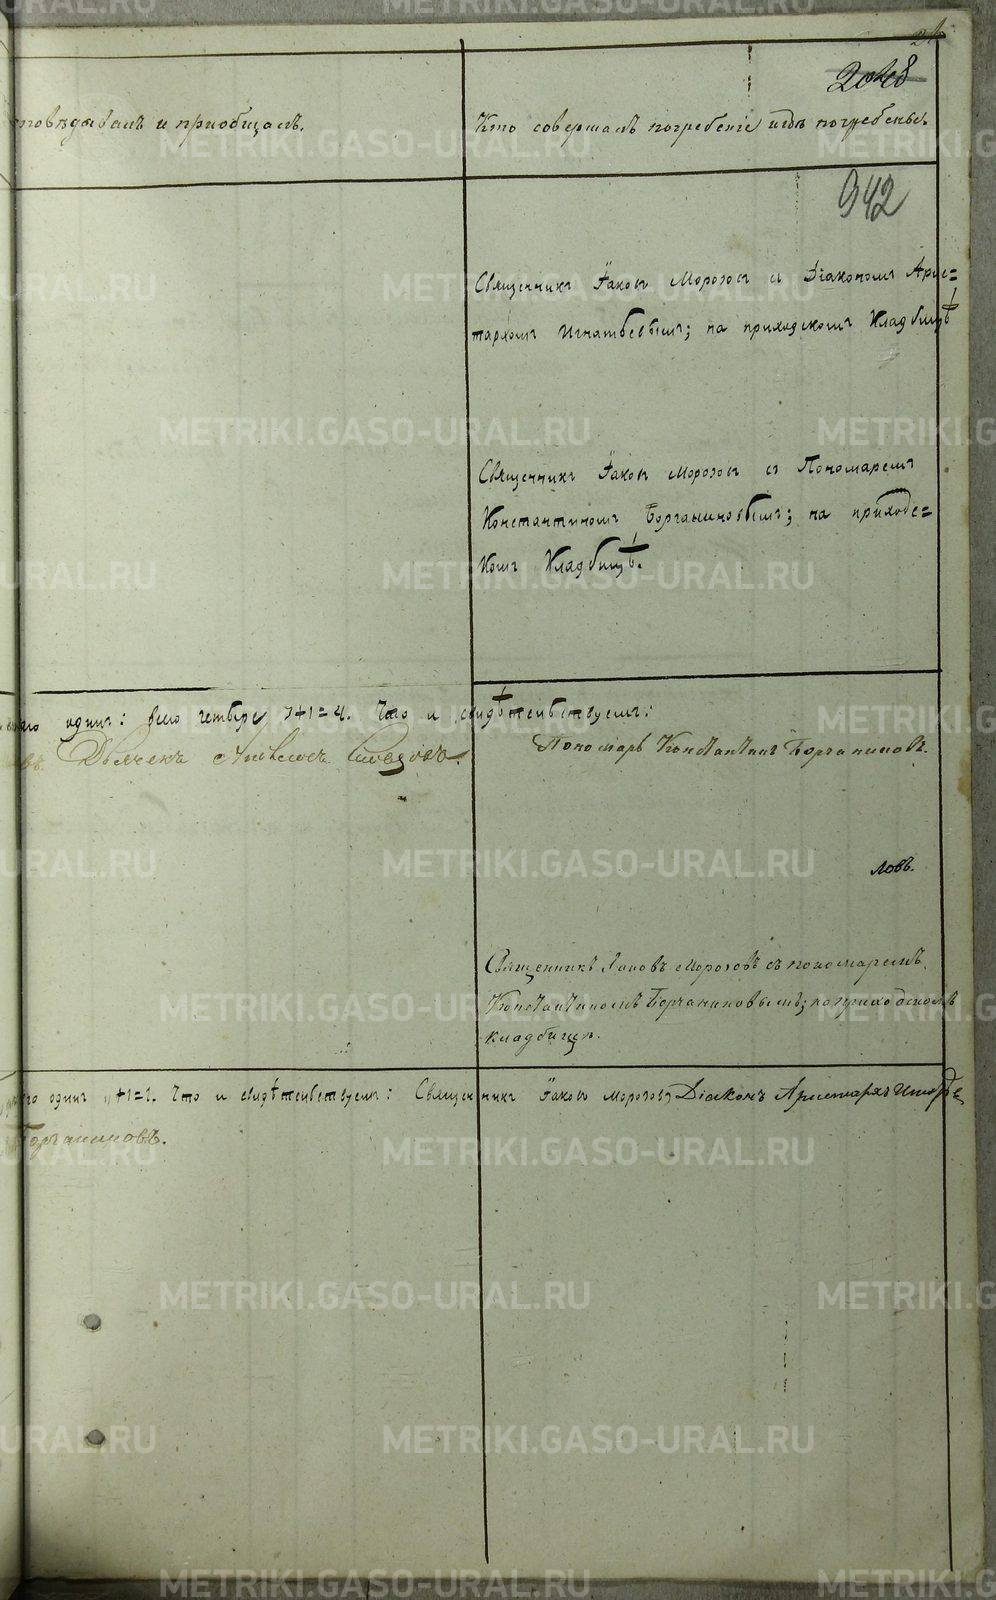 повѣдывалъ и приобщалъ.
Кто совершалъ погребеніе и гдѣ погребены.
942
Священникъ Іаковъ Морозовъ съ Діакономъ Арис=
тархомъ Игнатьевымъ; на приходскомъ кладбищѣ
Священникъ Іаковъ Морозовъ съ Пономаремъ
Константиномъ Борчаниновымъ; на приходс=
комъ кладбищѣ.
одинъ: всего четыре 3+1=4. Что и свидѣтельствуемъ:
Дьячекъ Алексей
Пономарь Константинъ Борчаниновъ.
ловъ.
Священникъ Іаковъ Морозовъ съ пономаремъ
Константиномъ Борчаниновымъ; на приходскомъ
кладбищѣ.
одинъ „+1=1. Что и свидѣтельствуемъ: Священникъ Іаковъ Морозовъ Діаконъ Аристархъ Игнать=
Борчаниновъ.
METRIKI.GASO-URAL.RU